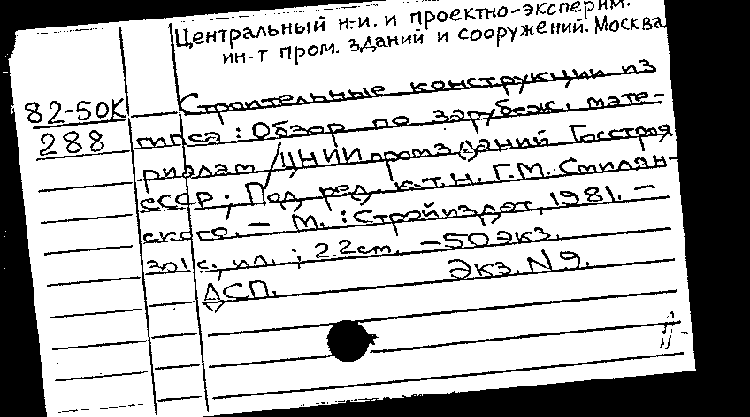 Центральный н-и. и проектно-эксперим.
ин-т пром. зданий и сооружений. Москва
82-50К
288
Строительные конструкции из
гипса: Обзор по зарубеж. мате-
риалам / ЦНИИпромзданий Госстроя
СССР; Под ред. к.т.н. Г.М. Смилян-
ского. – М.: Стройиздат, 1981. –
301 с., ил.; 22 см. – 50 экз.
ДСП. Экз. N 9.